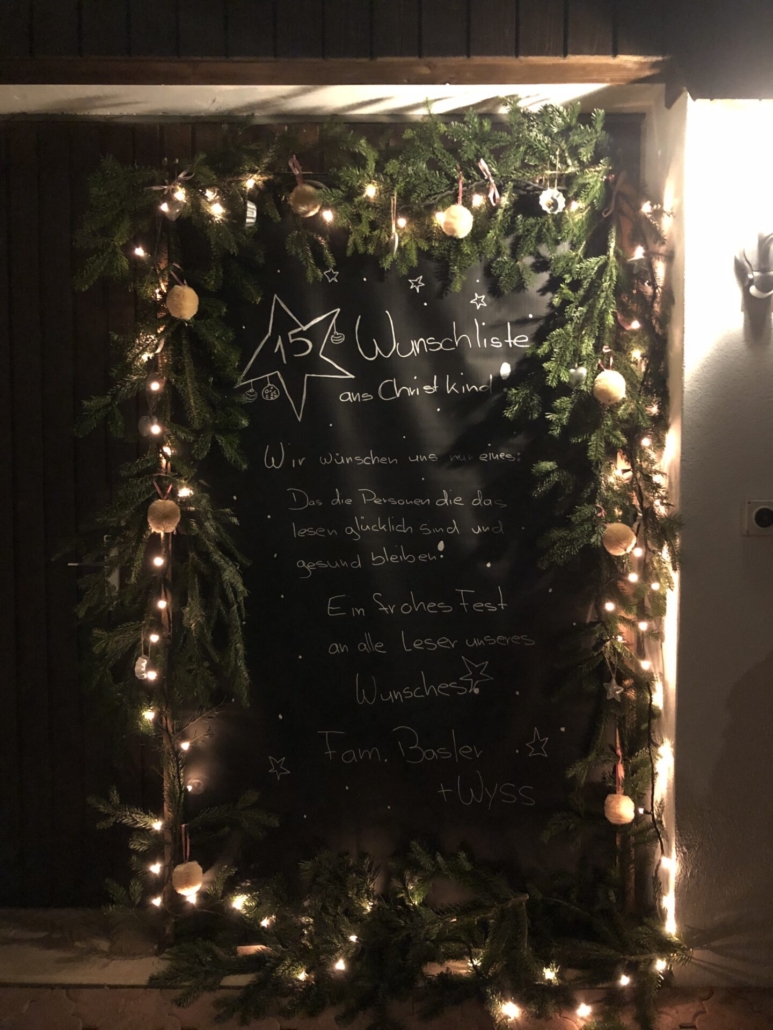 15 Wunschliste
ans Christkind
Wir wünschen uns nur eines:
Das die Personen die das
lesen glücklich sind und
gesund bleiben!
Ein frohes Fest
an alle Leser unseres
Wunsches!
Fam. Basler
+Wyss